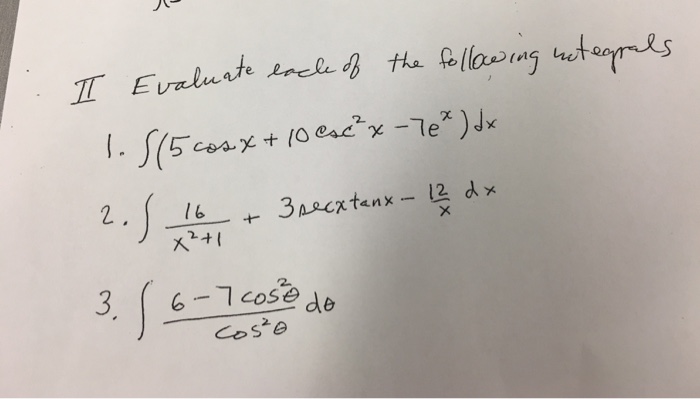 II Evaluate each of the following integrals
1. ∫(5 cosx + 10 csc²x − 7eˣ) dx
2. ∫ 16/(x²+1) + 3secxtanx − 12/x dx
3. ∫ (6 − 7 cos²θ)/(cos²θ) dθ